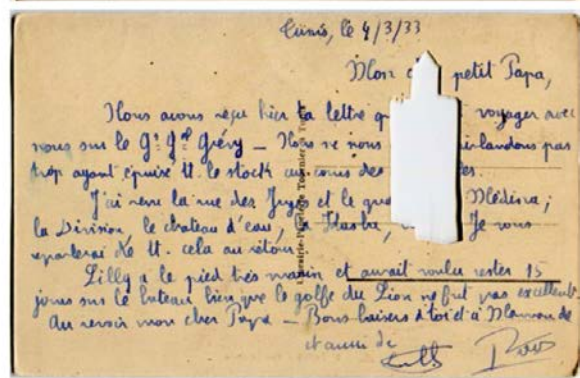 Tunis, le 4/3/33
Mon petit Papa,
Nous avons reçu hier ta lettre voyager avec
nous sur le Gr Gal Grévy — Nous ne nous pas
trop ayant épuisé tt. le stock au cours des
J'ai revu la rue des Juges et le Médina;
la Division, le chateau d'eau, Je vous
reparlerai de tt. cela au retour
Lilly a le pied très marin et aurait voulu rester 15
jours sur le bateau bien que le golfe du Lion ne fut pas excellent.
Au revoir mon cher Papa — Bons baisers à toi et à Maman de
et aussi de
Librairie-Papeterie Tournier Tunis